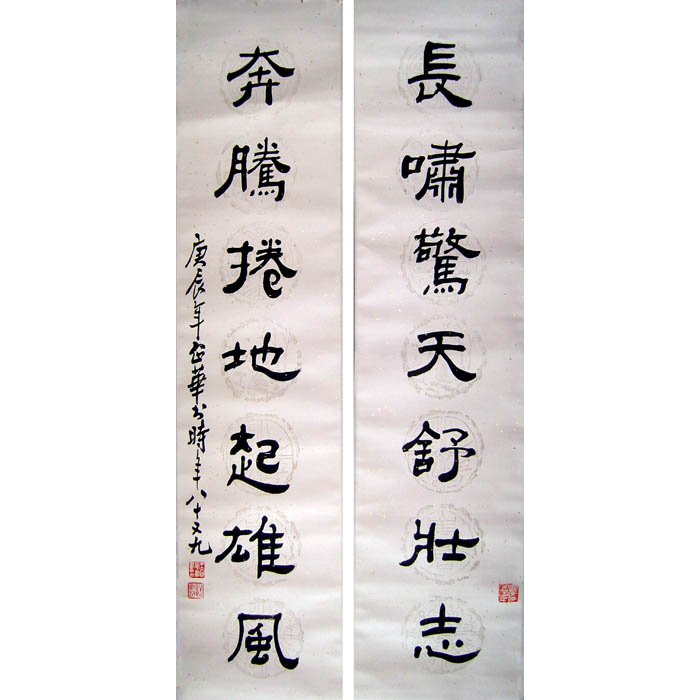 長嘯驚天舒壯志
奔騰捲地起雄風
庚辰年企華書時年八十又九